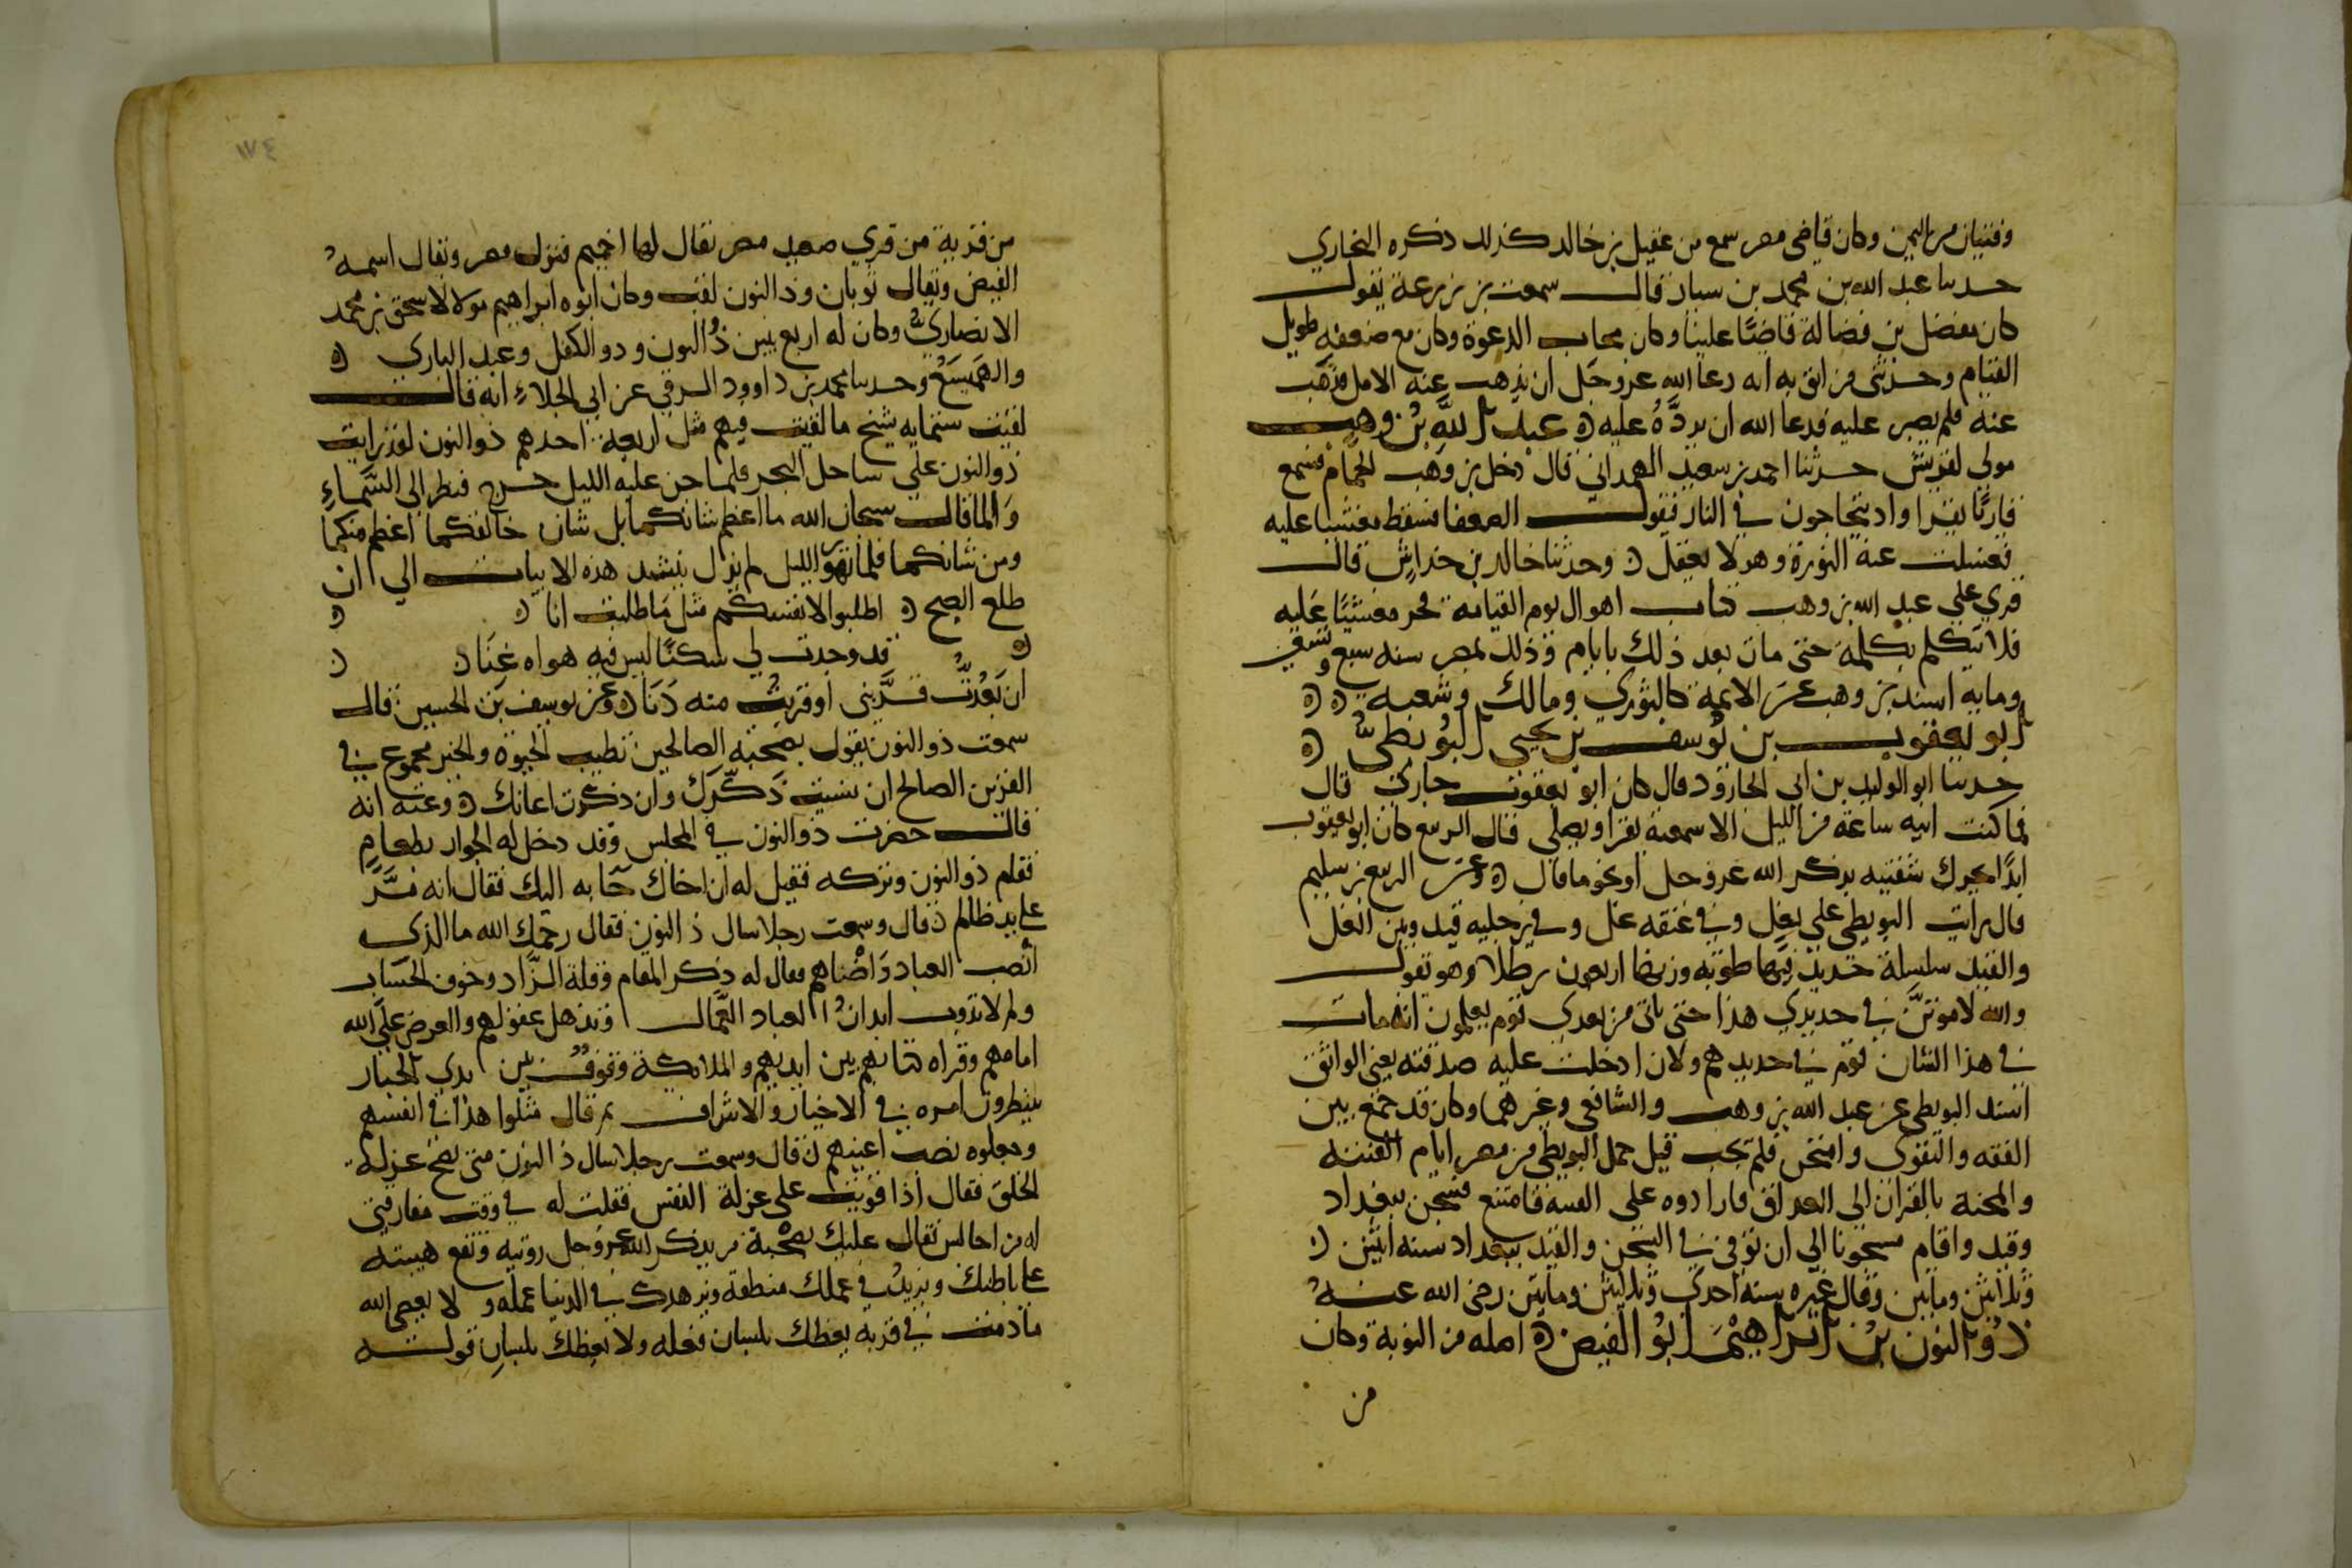 وقتبان من اليمن وكان قاضي مصر سمع من عقيل بن خالد كذلك ذكره البخاري
حدثنا عبد الله بن محمد بن سيار قال سمعت بن زرعة يقول
كان مفضل بن فضالة قاضيًا علينا وكان مجاب الدعوة وكان مع ضعفه طويل
القيام وحدثني من اثق به انه دعا الله عز وجل ان يذهب عنه الامل فذهب
عنه فلم يصبر عليه فدعا الله ان يردَّهُ عليه عبد الله بن وهب
مولي لقريش حدثنا احمد بن سعيد الهمداني قال دخل بن وهب الحمام فسمع
قاريًا يقرا واذ يتحاجون في النار فيقول الضعفا فسقط مغشيا عليه
فغسلت عنه النورة وهو لا يعقل وحدثنا خالد بن خداش قال
قري علي عبد الله بن وهب كتاب اهوال يوم القيامة فخر مغشيًا عليه
فلا يتكلم بكلمة حتى مات بعد ذلك بايام وذلك بمصر سنه سبع وتسعين
ومايه اسند بن وهب عن الائمة كالثوري ومالك وشعبه
ابو يعقوب بن يوسف بن يحيى البويطي
حدثنا ابو الوليد بن ابي الجارود قال كان ابو يعقوب جاري قال
فما كنت انتبه ساعة من الليل الا سمعته يقرا ويصلي قال الربيع كان ابو يعقوب
ابدًا يحرك شفتيه بذكر الله عز وجل او نحو ما قال وعن الربيع بن سليم
قال رايت البويطي علي بغل وفي عنقه غل وفي رجليه قيد وبين الغل
والقيد سلسلة حديد فيها طوبه وزنها اربعون رطلا وهو يقول
والله لاموتنَّ في حديدي هذا حتى ياتي من بعدي قوم يعلمون انه مات
في هذا الشان قوم في حديدهم ولان ادخلت عليه صدقته يعني الواثق
اسند البويطي عن عبد الله بن وهب والشافعي وغيرهما وكان قد جمع بين
الفقه والتقوى وامتحن فلم يجب قيل حمل البويطي من مصر ايام الفتنه
والمحنة بالقران الى العراق فارادوه على الفتنة فامتنع فسجن ببغداد
وقيد واقام مسجونا الي ان توفي في السجن والقيد ببغداد سنه اثنين
وثلاثين ومايتين وقال غيره سنة احدي وثلاثين ومايتين رضي الله عنهُ
ذو النون بن ابراهيم ابو الفيض اصله من النوبة وكان
من
١٧٤
من قرية من قري صعيد مصر يقال لها اخميم فنزل مصر ويقال اسمهُ
الفيض ويقال ثوبان وذ النون لقب وكان ابوه ابراهيم مولا لاسحق بن محمد
الانصاريّ وكان له اربع بنين ذو النون وذو الكفل وعبد الباري
والهميسع وحدثنا محمد بن داوود الرقي عن ابي الجلاء انه قال
لقيت ستمايه شيخ ما لقيت فيهم مثل اربعة احدهم ذو النون لقد رايت
ذو النون علي ساحل البحر فلما جن عليه الليل خرج فنظر الى السماءِ
والما قال سبحان الله ما اعظم شانكما بل شان خالقكما اعظم منكما
ومن شانكما فلما تهور الليل لم يزل ينشد هذه الابيات الي ان
طلع الصبح اطلبوا لانفسكم مثل ما طلبت انا
قد وجدت لي سكنًا ليس في هواه عنا
ان بَعُدتُّ قرَّبني او قربتُ منه دنا وعن يوسف بن الحسين قال
سمعت ذو النون يقول بصحبة الصالحين تطيب الحيوة والخير مجموع في
القرين الصالح ان نسيت ذكّرك وان ذكرت اعانك وعنه انه
قال حضرت ذو النون في المجلس وقد دخل له الجواز بطعام
فقام ذو النون وتركه فقيل له ان اخاك جا به اليك فقال انه مرَّ
علي يد ظالم قال وسمعت رجلا سال ذ النون فقال رحمك الله ما الذي
أنصب العباد وَاضناهم فقال له ذكر المقام وقلة الزَّاد وخوف الحساب
ولم لا تذوب ابدانُ العباد العمَّال وتذهل عقولهم والعرض على الله
امامهم وقراه كتابهم بين ايديهم والملائكة وقوف بين يدي الجبار
ينتظرون امره في الاخيار والاشرار ثم قال مثلوا هذا في انفسهم
وجعلوه نصب اعينهم قال وسمعت رجلا سال ذ النون متى تصح عزلة
الخلق فقال اذا قويت على عزلة النفس فقلت له في وقت مفارقتي
له من اجالس فقال عليك بصحبة من يذكر الله عز وجل رويته وتقع هيبته
علي باطنك ويزيدُ في عملك منطقه ويزهدك في الدنيا عمله ولا يعصى الله
ما دمت في قربه يعظك بلسان فعله ولا يعظك بلسان قوله